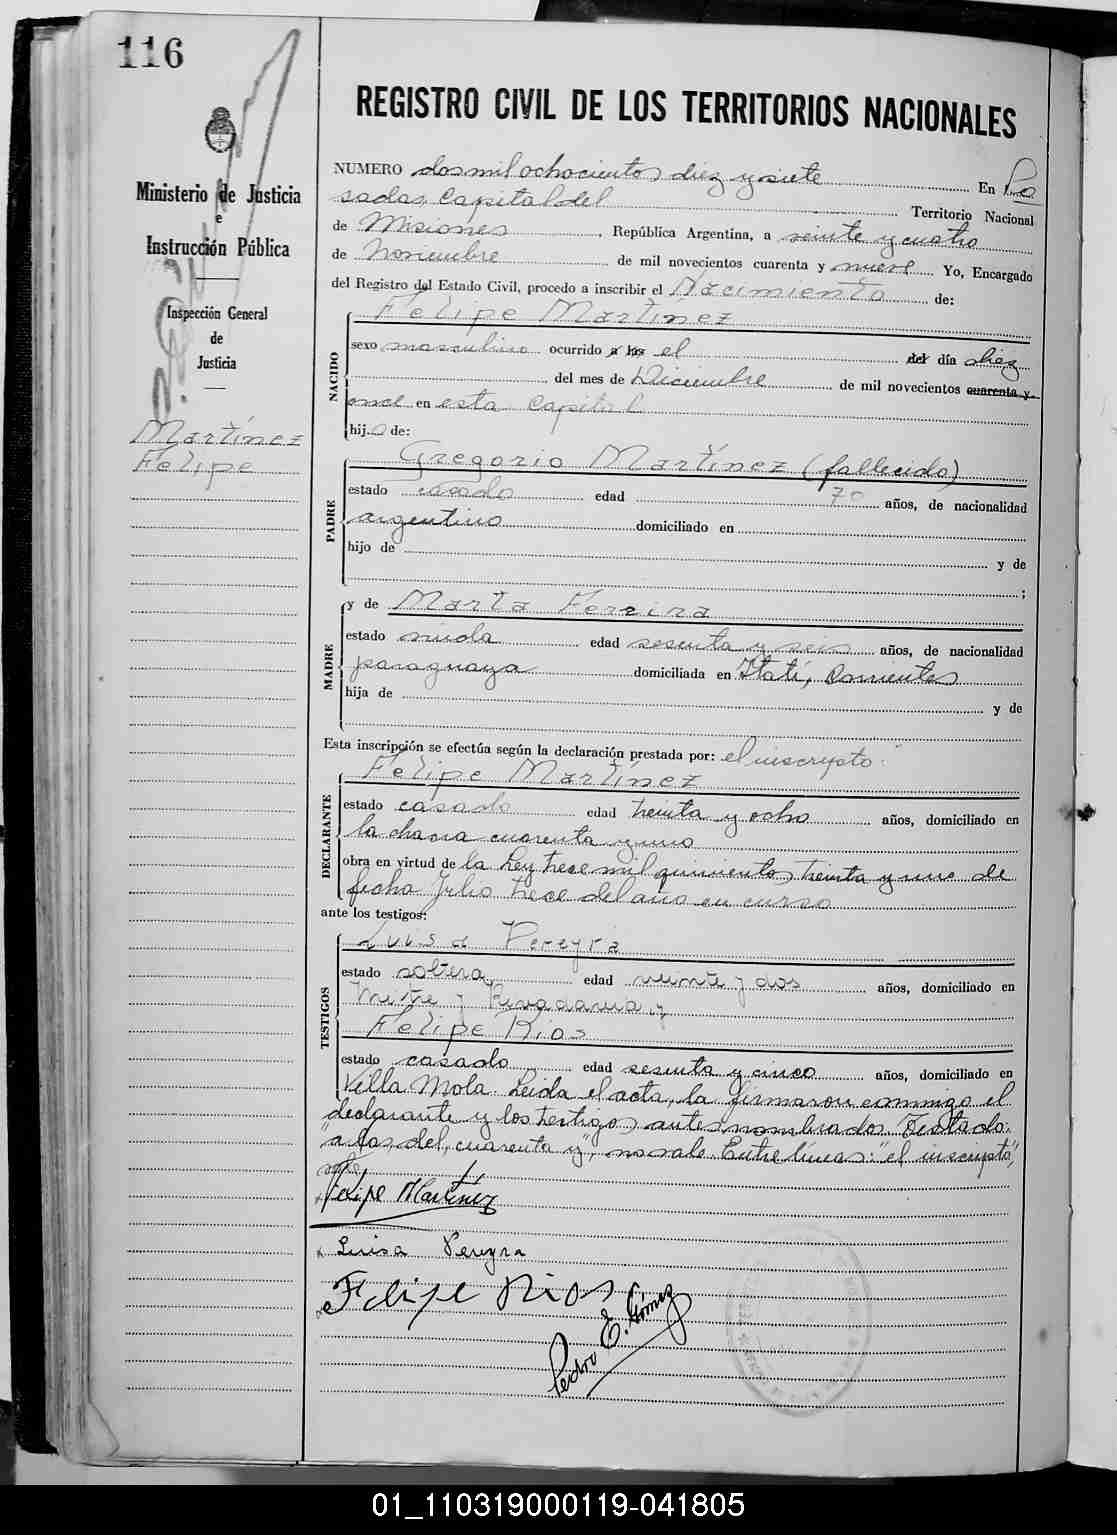 116
Ministerio de Justicia
e
Instrucción Pública
Inspección General
de
Justicia
Martínez
Felipe
REGISTRO CIVIL DE LOS TERRITORIOS NACIONALES
NUMERO dos mil ochocientos diez y siete En Po
sadas, Capital del Territorio Nacional
de Misiones, República Argentina, a veinte y cuatro
de Noviembre de mil novecientos cuarenta y nueve Yo, Encargado
del Registro del Estado Civil, procedo a inscribir el Nacimiento de:
Felipe Martínez
NACIDO
sexo masculino ocurrido a las el del día diez
del mes de Diciembre de mil novecientos cuarenta y
once en esta Capital
hijo de:
Gregorio Martínez (fallecido)
PADRE
estado casado edad 70 años, de nacionalidad
argentino domiciliado en
hijo de y de
;
MADRE
y de Marta Ferreira
estado viuda edad sesenta y seis años, de nacionalidad
paraguaya domiciliada en Itatí, Corrientes
hija de y de
Esta inscripción se efectúa según la declaración prestada por: el inscripto
Felipe Martínez
DECLARANTE
estado casado edad treinta y ocho años, domiciliado en
la chacra cuarenta y uno
obra en virtud de la Ley trece mil quinientos treinta y uno de
fecha Julio trece del año en curso
ante los testigos:
Luisa Pereyra
TESTIGOS
estado soltera edad veinte y dos años, domiciliado en
Mitre y Rivadavia y
Felipe Rios
estado casado edad sesenta y cinco años, domiciliado en
Villa Mola. Leida el acta, la firmaron conmigo el
declarante y los testigos antes nombrados. Testado:
"a las, del, cuarenta y", no vale. Entre líneas: "el inscripto",
vale.
Felipe Martínez
x Luisa Pereyra
x Felipe Rios
Pedro E. Gómez
01_110319000119-041805